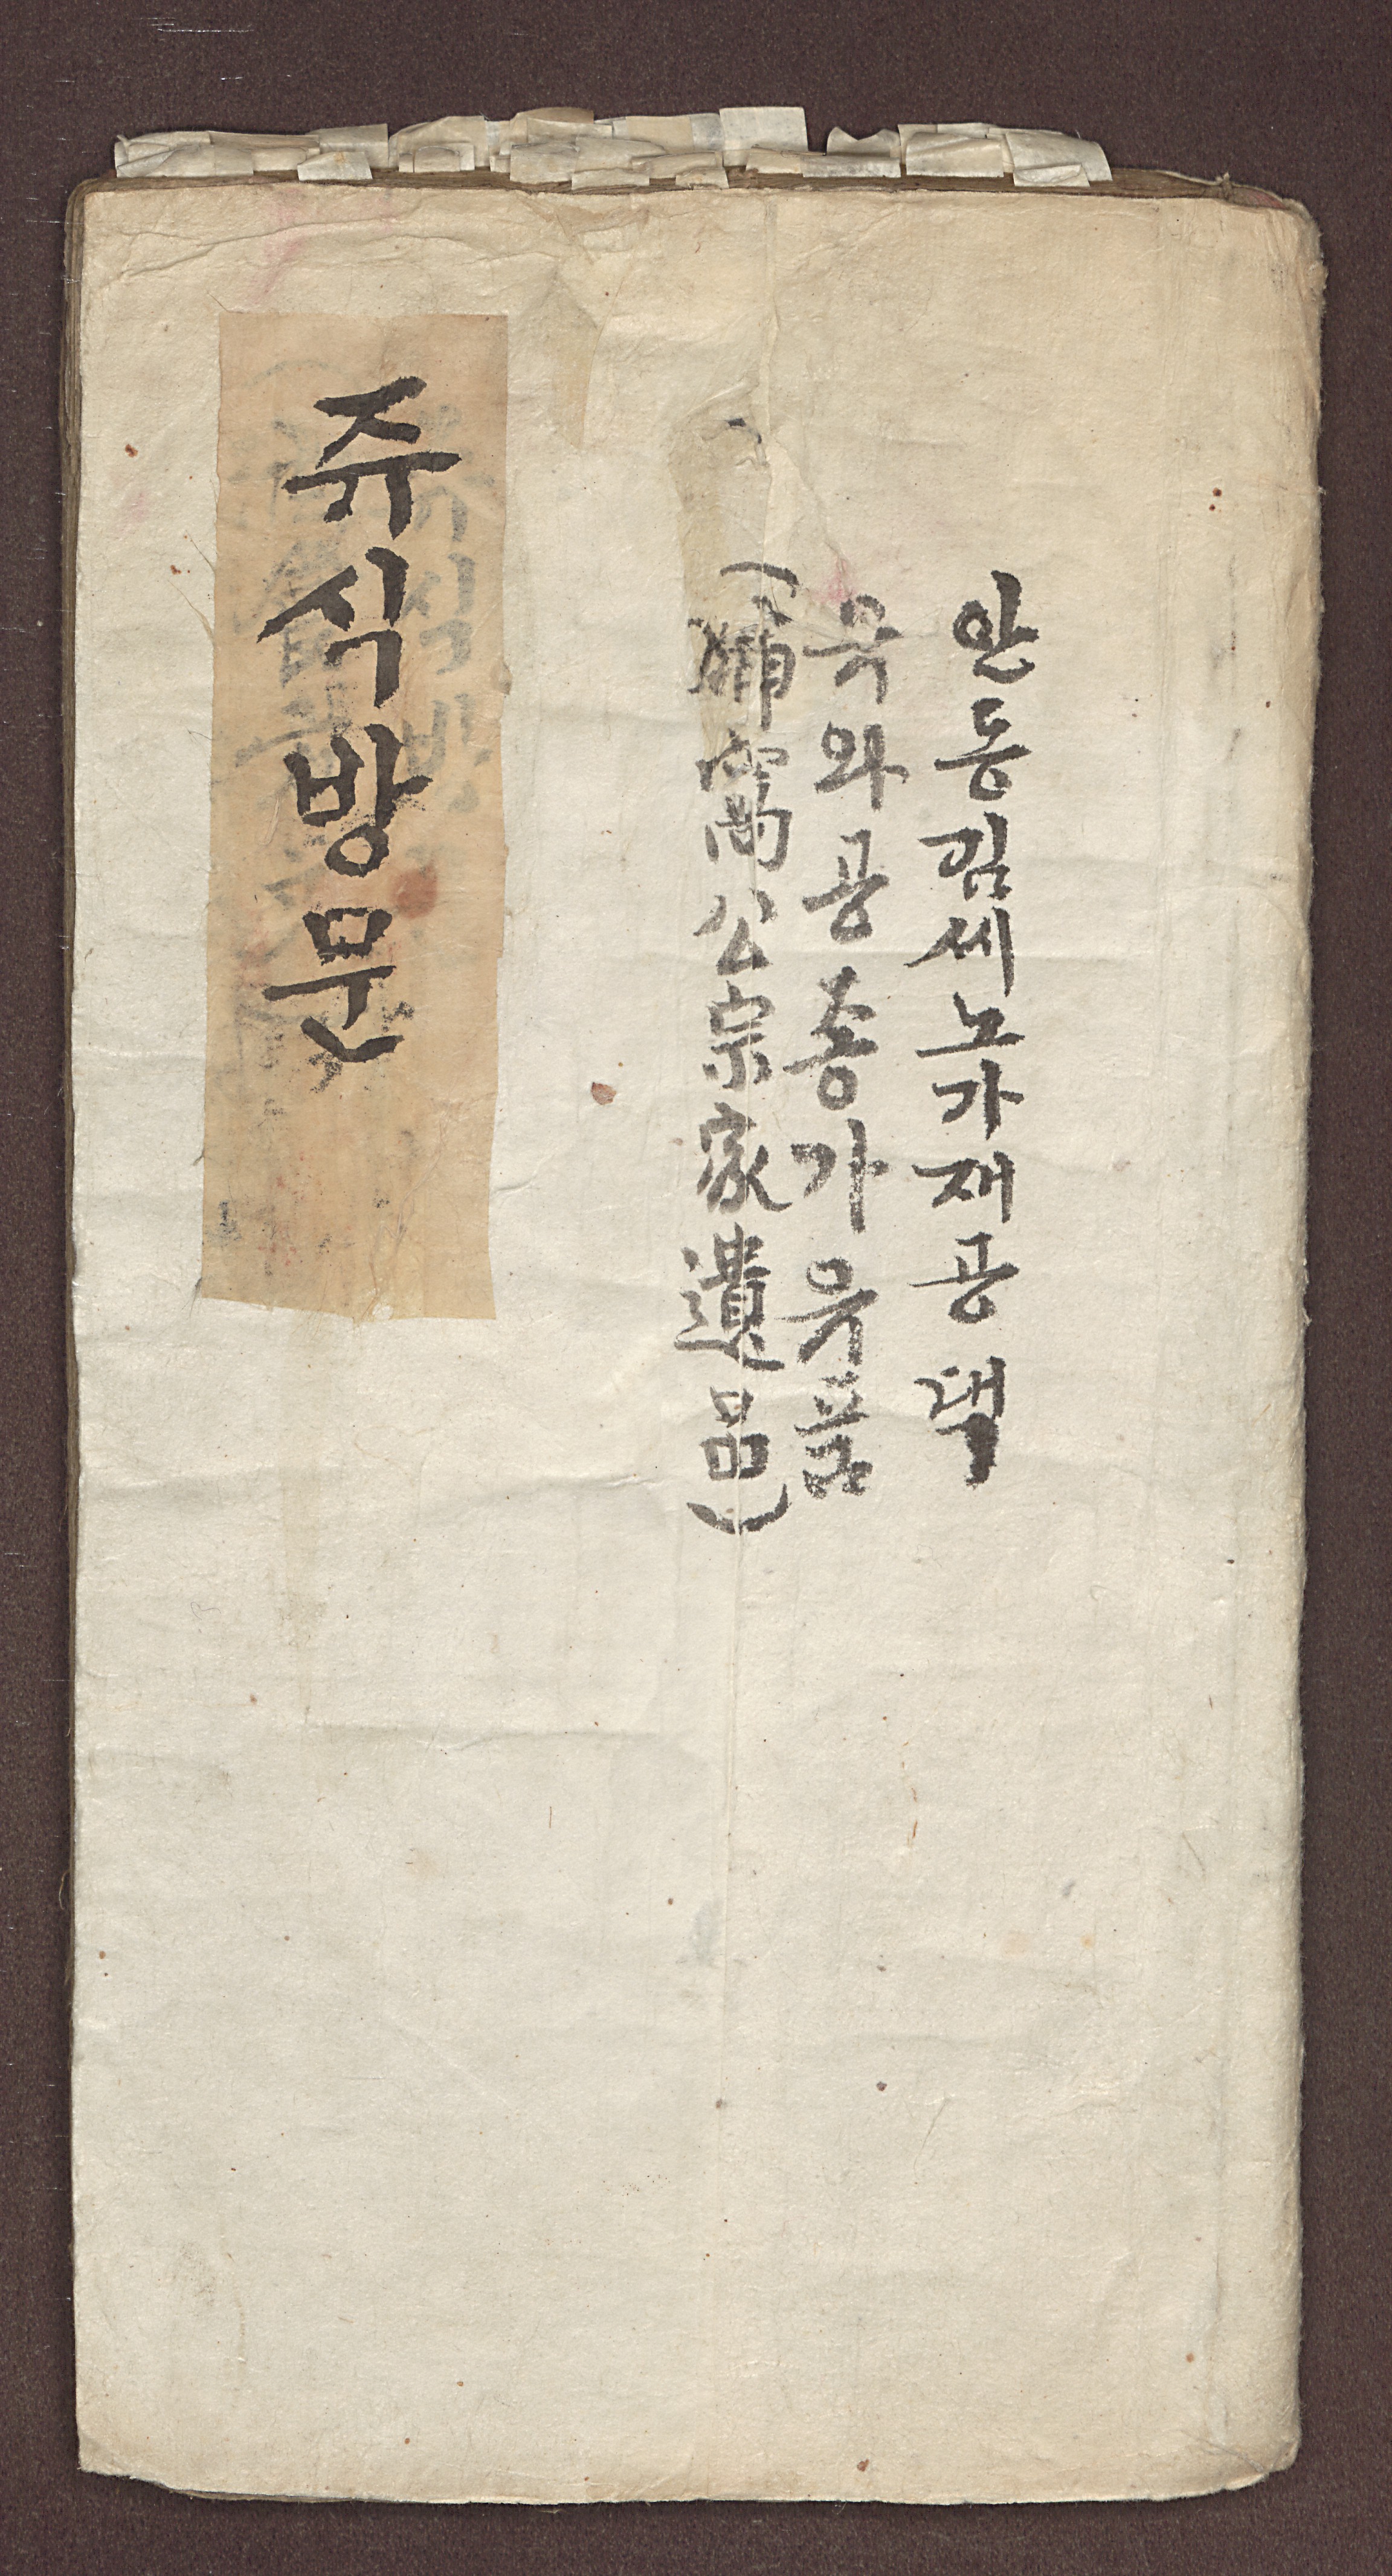 안동김씨노가재공댁
유와공종가유품
(牖窩公宗家遺品)
쥬식방문